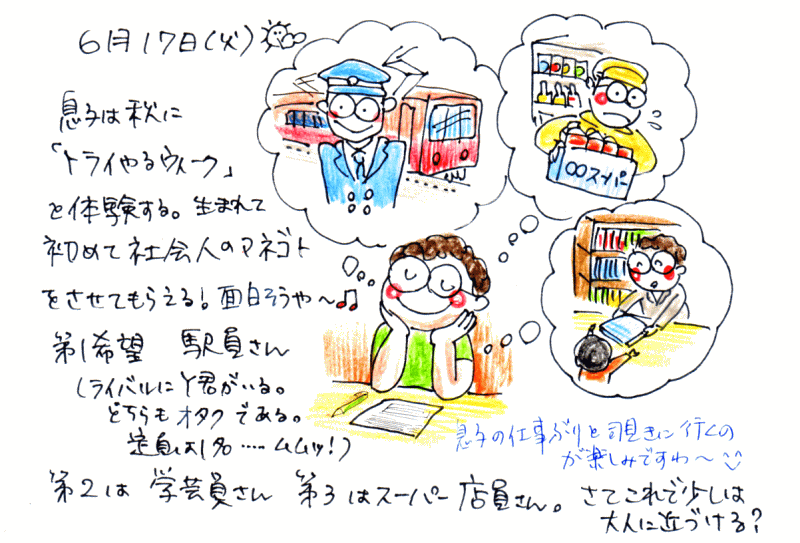 6月17日(火)
息子は秋に
「トライやるウィーク」
を体験する。生まれて
初めて社会人のマネゴト
をさせてもらえる!面白そうや〜♫
第1希望 駅員さん
(ライバルにY君がいる。
どちらもオタクである。
定員は1名‥‥ムムッ!)
第2は 学芸員さん 第3はスーパー店員さん。さてこれで少しは
大人に近づける?
〇〇スーパー
息子の仕事ぶりを覗きに行くの
が楽しみですわ〜